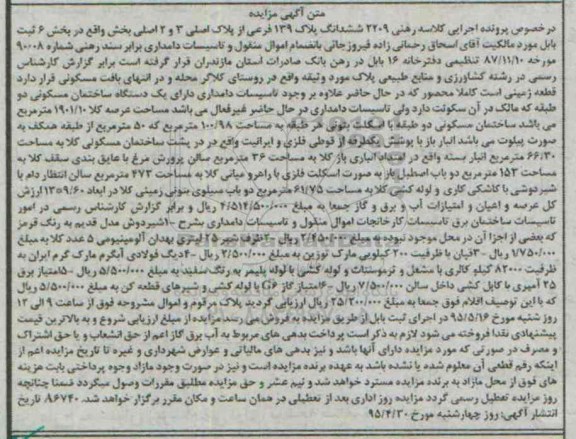 متن آگهی مزایده
در خصوص پرونده اجرایی کلاسه رهنی ۲۲۰۹ ششدانگ پلاک ۱۳۹ فرعی از پلاک اصلی ۳ و ۲ اصلی بخش واقع در بخش ۶ ثبت
بابل مورد مالکیت آقای اسحاق رحمانی زاده فیروزجائی بانضمام اموال منقول و تاسیسات دامداری برابر سند رهنی شماره ۹۰۰۰۸
مورخه ۸۷/۱۱/۱۰ تنظیمی دفترخانه ۱۶ بابل در رهن بانک صادرات استان مازندران قرار گرفته است برابر گزارش کارشناس
رسمی در رشته کشاورزی و منابع طبیعی پلاک مورد وثیقه واقع در روستای کلاگر محله و در انتهای بافت مسکونی قرار دارد
قطعه زمینی است کاملا محصور که در حال حاضر علاوه بر وجود تاسیسات دامداری دارای یک دستگاه ساختمان مسکونی دو
طبقه که مالک در آن سکونت دارد ولی تاسیسات دامداری در حال حاضر غیرفعال می باشد مساحت عرصه کلا ۱۹۰۱/۱۰ مترمربع
می باشد ساختمان مسکونی دو طبقه با اسکلت بتونی هر طبقه به مساحت ۱۰۰/۹۸ مترمربع که ۵۰ مترمربع از طبقه همکف به
صورت پیلوت می باشد انبار باز با پوشش یکطرفه از قوطی فلزی و ایرانیت واقع در در پشت ساختمان مسکونی کلا به مساحت
۶۶/۳۰ مترمربع انبار بسته واقع در امتداد انباری باز کلا به مساحت ۳۶ مترمربع سالن پرورش مرغ با عایق بندی سقف کلا به
مساحت ۱۵۳ مترمربع دو باب اصطبل باز به صورت اسکلت فلزی با راهرو میانی کلا به مساحت ۴۷۳ مترمربع سالن انتظار دام با
شیردوشی با کاشی کاری و لوله کشی کلا به مساحت ۶۱/۷۵ مترمربع دو باب سیلوی بتونی زمینی کلا در ابعاد ۱۳۵۹/۶۰ ارزش
کل عرصه و اعیان و امتیازات آب و برق و گاز جمعا به مبلغ ۴/۵۱۴/۵۰۰/۰۰۰ ریال و برابر گزارش کارشناس رسمی در امور
تاسیسات ساختمان برق تاسیسات کارخانجات اموال منقول و تاسیسات دامداری بشرح ۱-شیردوش مدل قدیم به رنگ قرمز
که بعضی از اجزا آن در محل موجود نبوده به مبلغ ۲/۴۵۰/۰۰۰ ریال ۲-ظرف شیر ۲۵ لیتری بهدان آلومینیومی ۵ عدد کلا به مبلغ
۱/۷۵۰/۰۰۰ ریال ۳-قپان با ظرفیت ۲۰۰ کیلویی مارک توزین به مبلغ ۲/۵۰۰/۰۰۰ ریال ۴-دیگ فولادی آبگرم مارک گرم ایران به
ظرفیت ۸۲۰۰۰ کیلو کالری با مشعل و ترموستات و لوله کشی با لوله پلیمر به رنگ سفید به مبلغ ۵/۵۰۰/۰۰۰ ریال ۵-امتیاز برق
۲۵ آمپری با کابل کشی داخل سالن ۷/۵۰۰/۰۰۰ ریال ۶-امتیاز گاز G۶ با لوله کشی و شیرهای قطعه کن به مبلغ ۵/۵۰۰/۰۰۰ ریال
که با این توصیف اقلام فوق جمعا به مبلغ ۲۵/۲۰۰/۰۰۰ ریال ارزیابی گردید پلاک مرقوم و اموال مشروحه فوق از ساعت ۹ الی ۱۲
روز شنبه مورخ ۹۵/۵/۱۶ در اجرای ثبت بابل از طریق مزایده به فروش می رسد مزایده از مبلغ ارزیابی شروع و به بالاترین قیمت
پیشنهادی نقدا فروخته می شود لازم به ذکر است پرداخت بدهی های مربوط به آب برق گاز اعم از حق انشعاب و یا حق اشتراک
و مصرف در صورتی که مورد مزایده دارای آنها باشد و نیز بدهی های مالیاتی و عوارض شهرداری و غیره تا تاریخ مزایده اعم از
اینکه رقم قطعی آن معلوم شده یا نشده باشد به عهده برنده مزایده است و نیز در صورت وجود مازاد وجوه پرداختی بابت هزینه
های فوق از محل مازاد به برنده مزایده مسترد خواهد شد و نیم عشر و حق مزایده مطابق مقررات وصول میگردد ضمنا چنانچه
روز مزایده تعطیل رسمی گردد مزایده روز اداری بعد از تعطیلی در همان ساعت و مکان مقرر برگزار خواهد شد. ۸۶۷۴۰ تاریخ
انتشار آگهی: روز چهارشنبه مورخ ۹۵/۴/۳۰